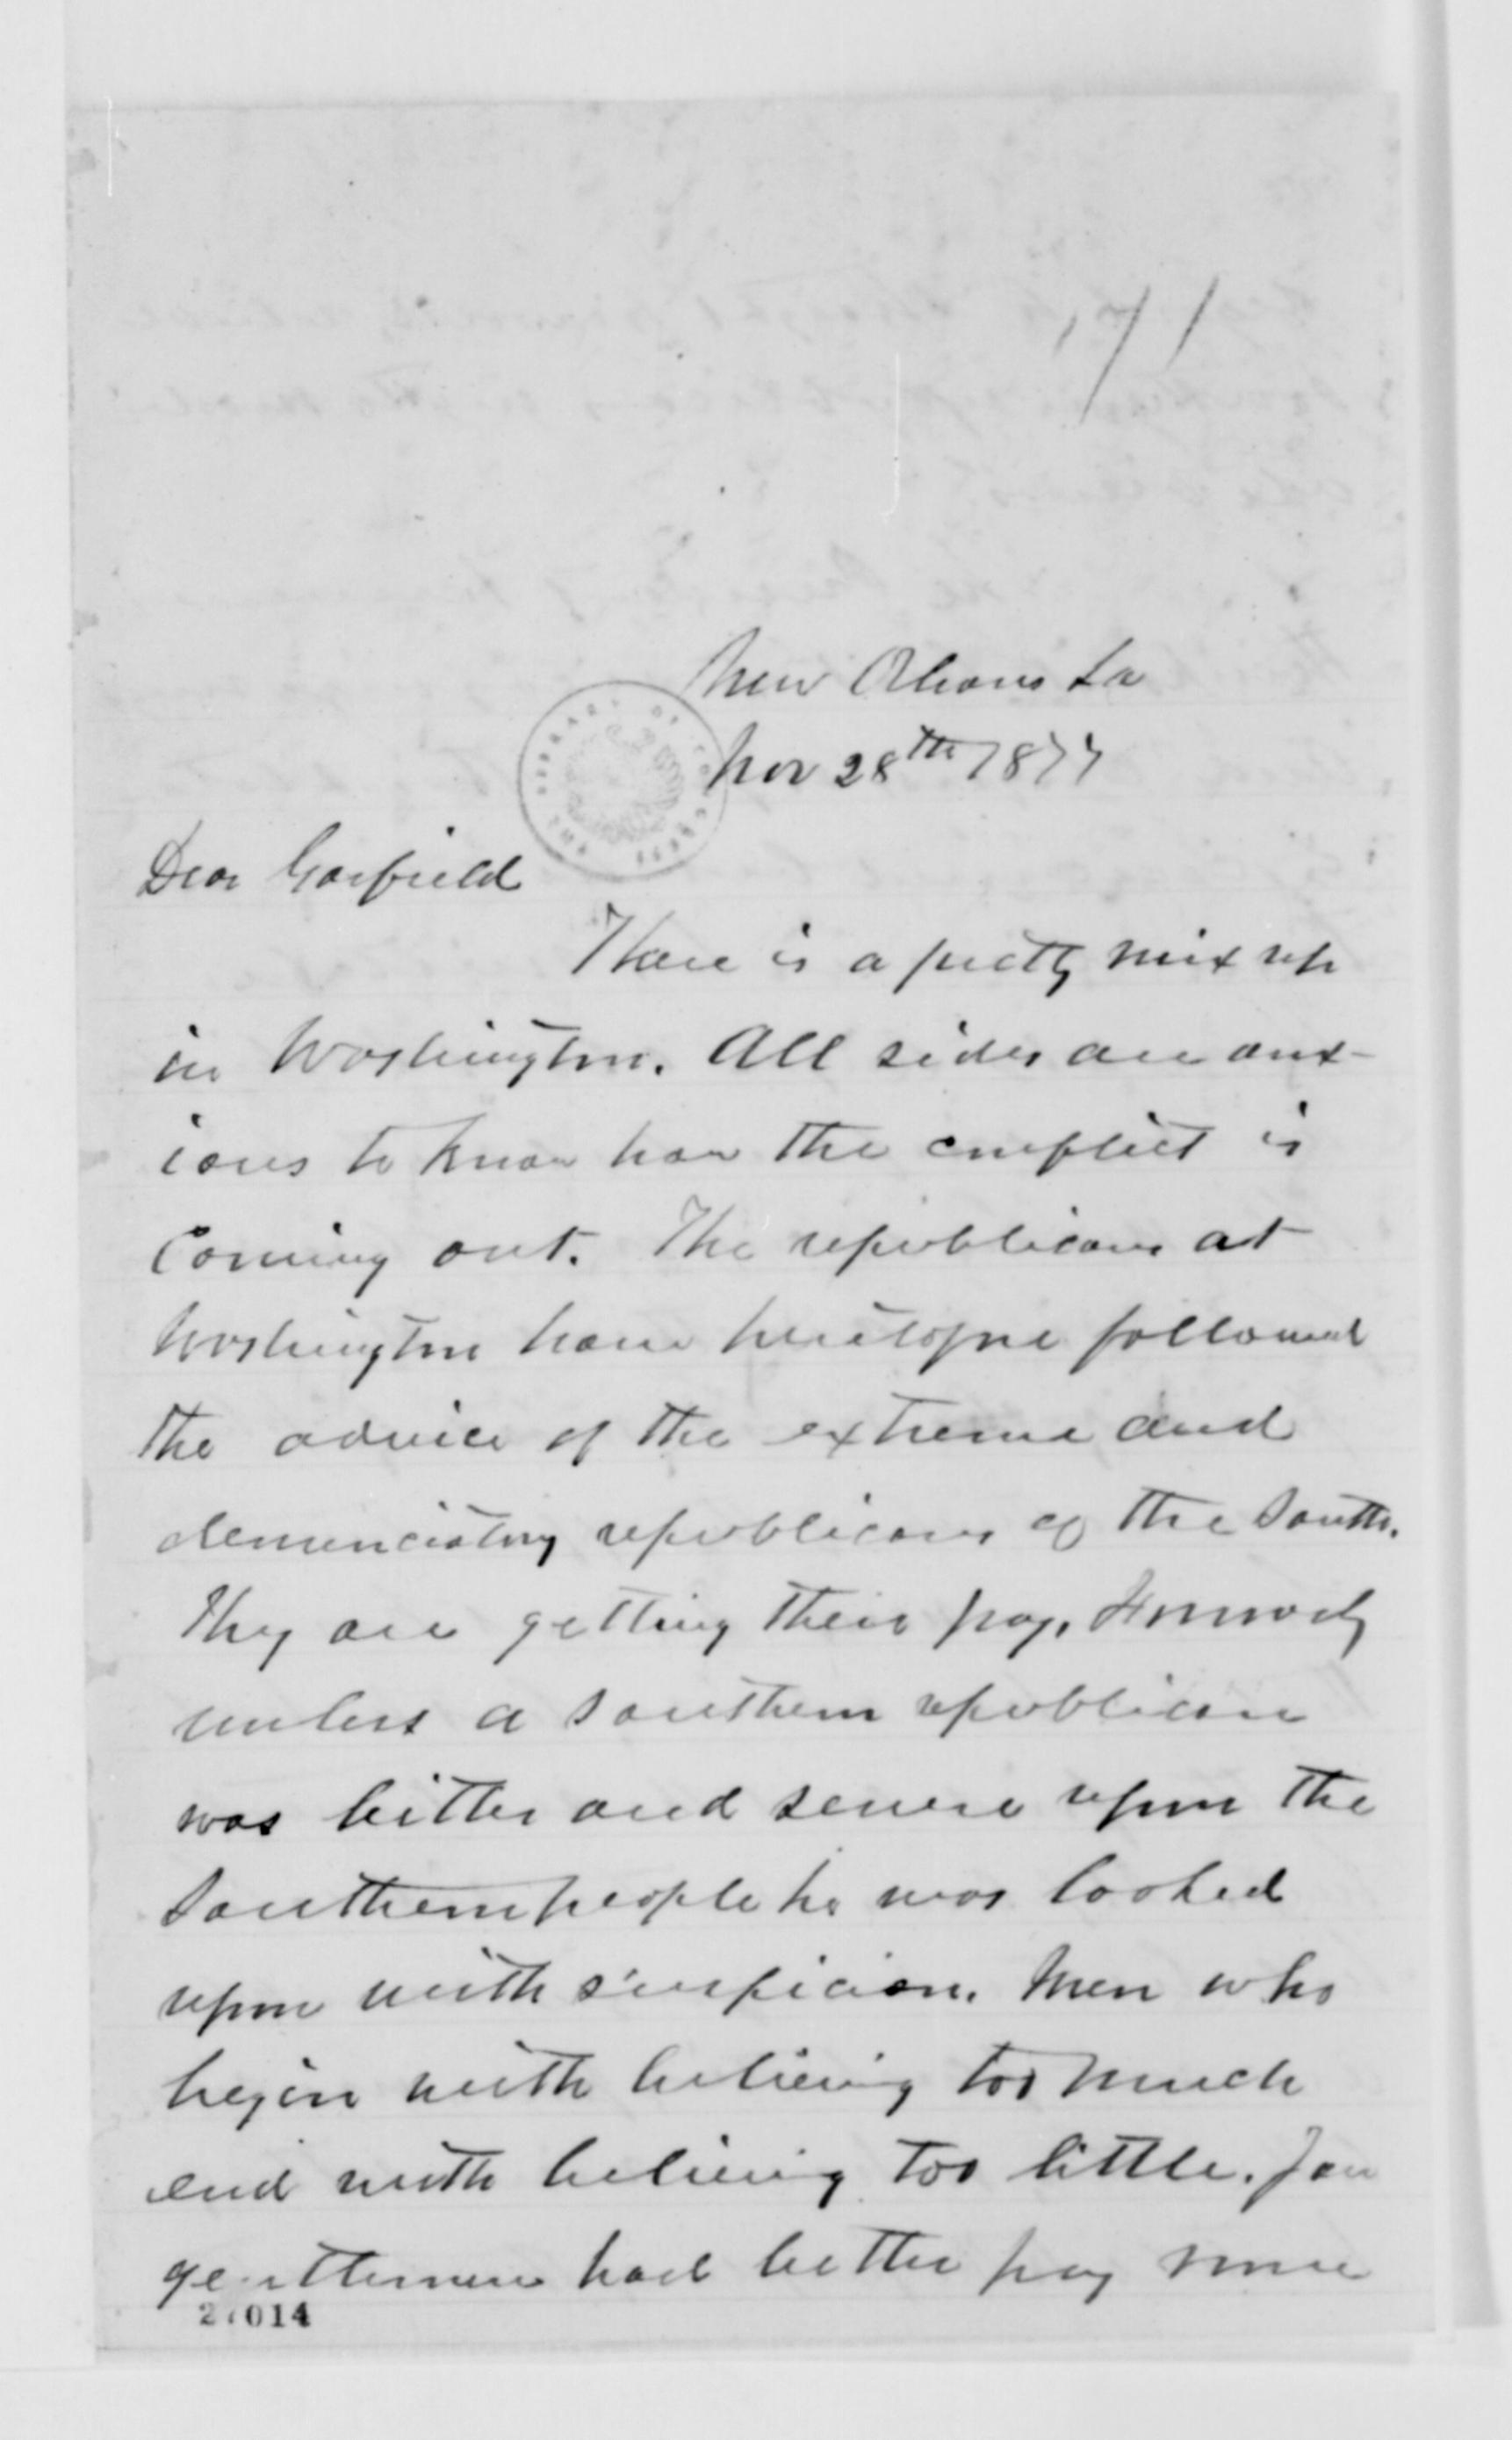 171
New Orleans La
Nov 28th 1877
Dear Garfield
There is a pretty mix up
in Washington. All sides are anx-
ious to know how the conflict is
coming out. The republicans at
Washington have heretofore followed
the advice of the extreme and
denunciatory republicans of the South.
They are getting their pay. Formerly
unless a Southern republican
was bitter and severe upon the
Southern people he was looked
upon with suspicion. Men who
begin with believing too much
end with believing too little. You
gentlemen had better pay more
27014